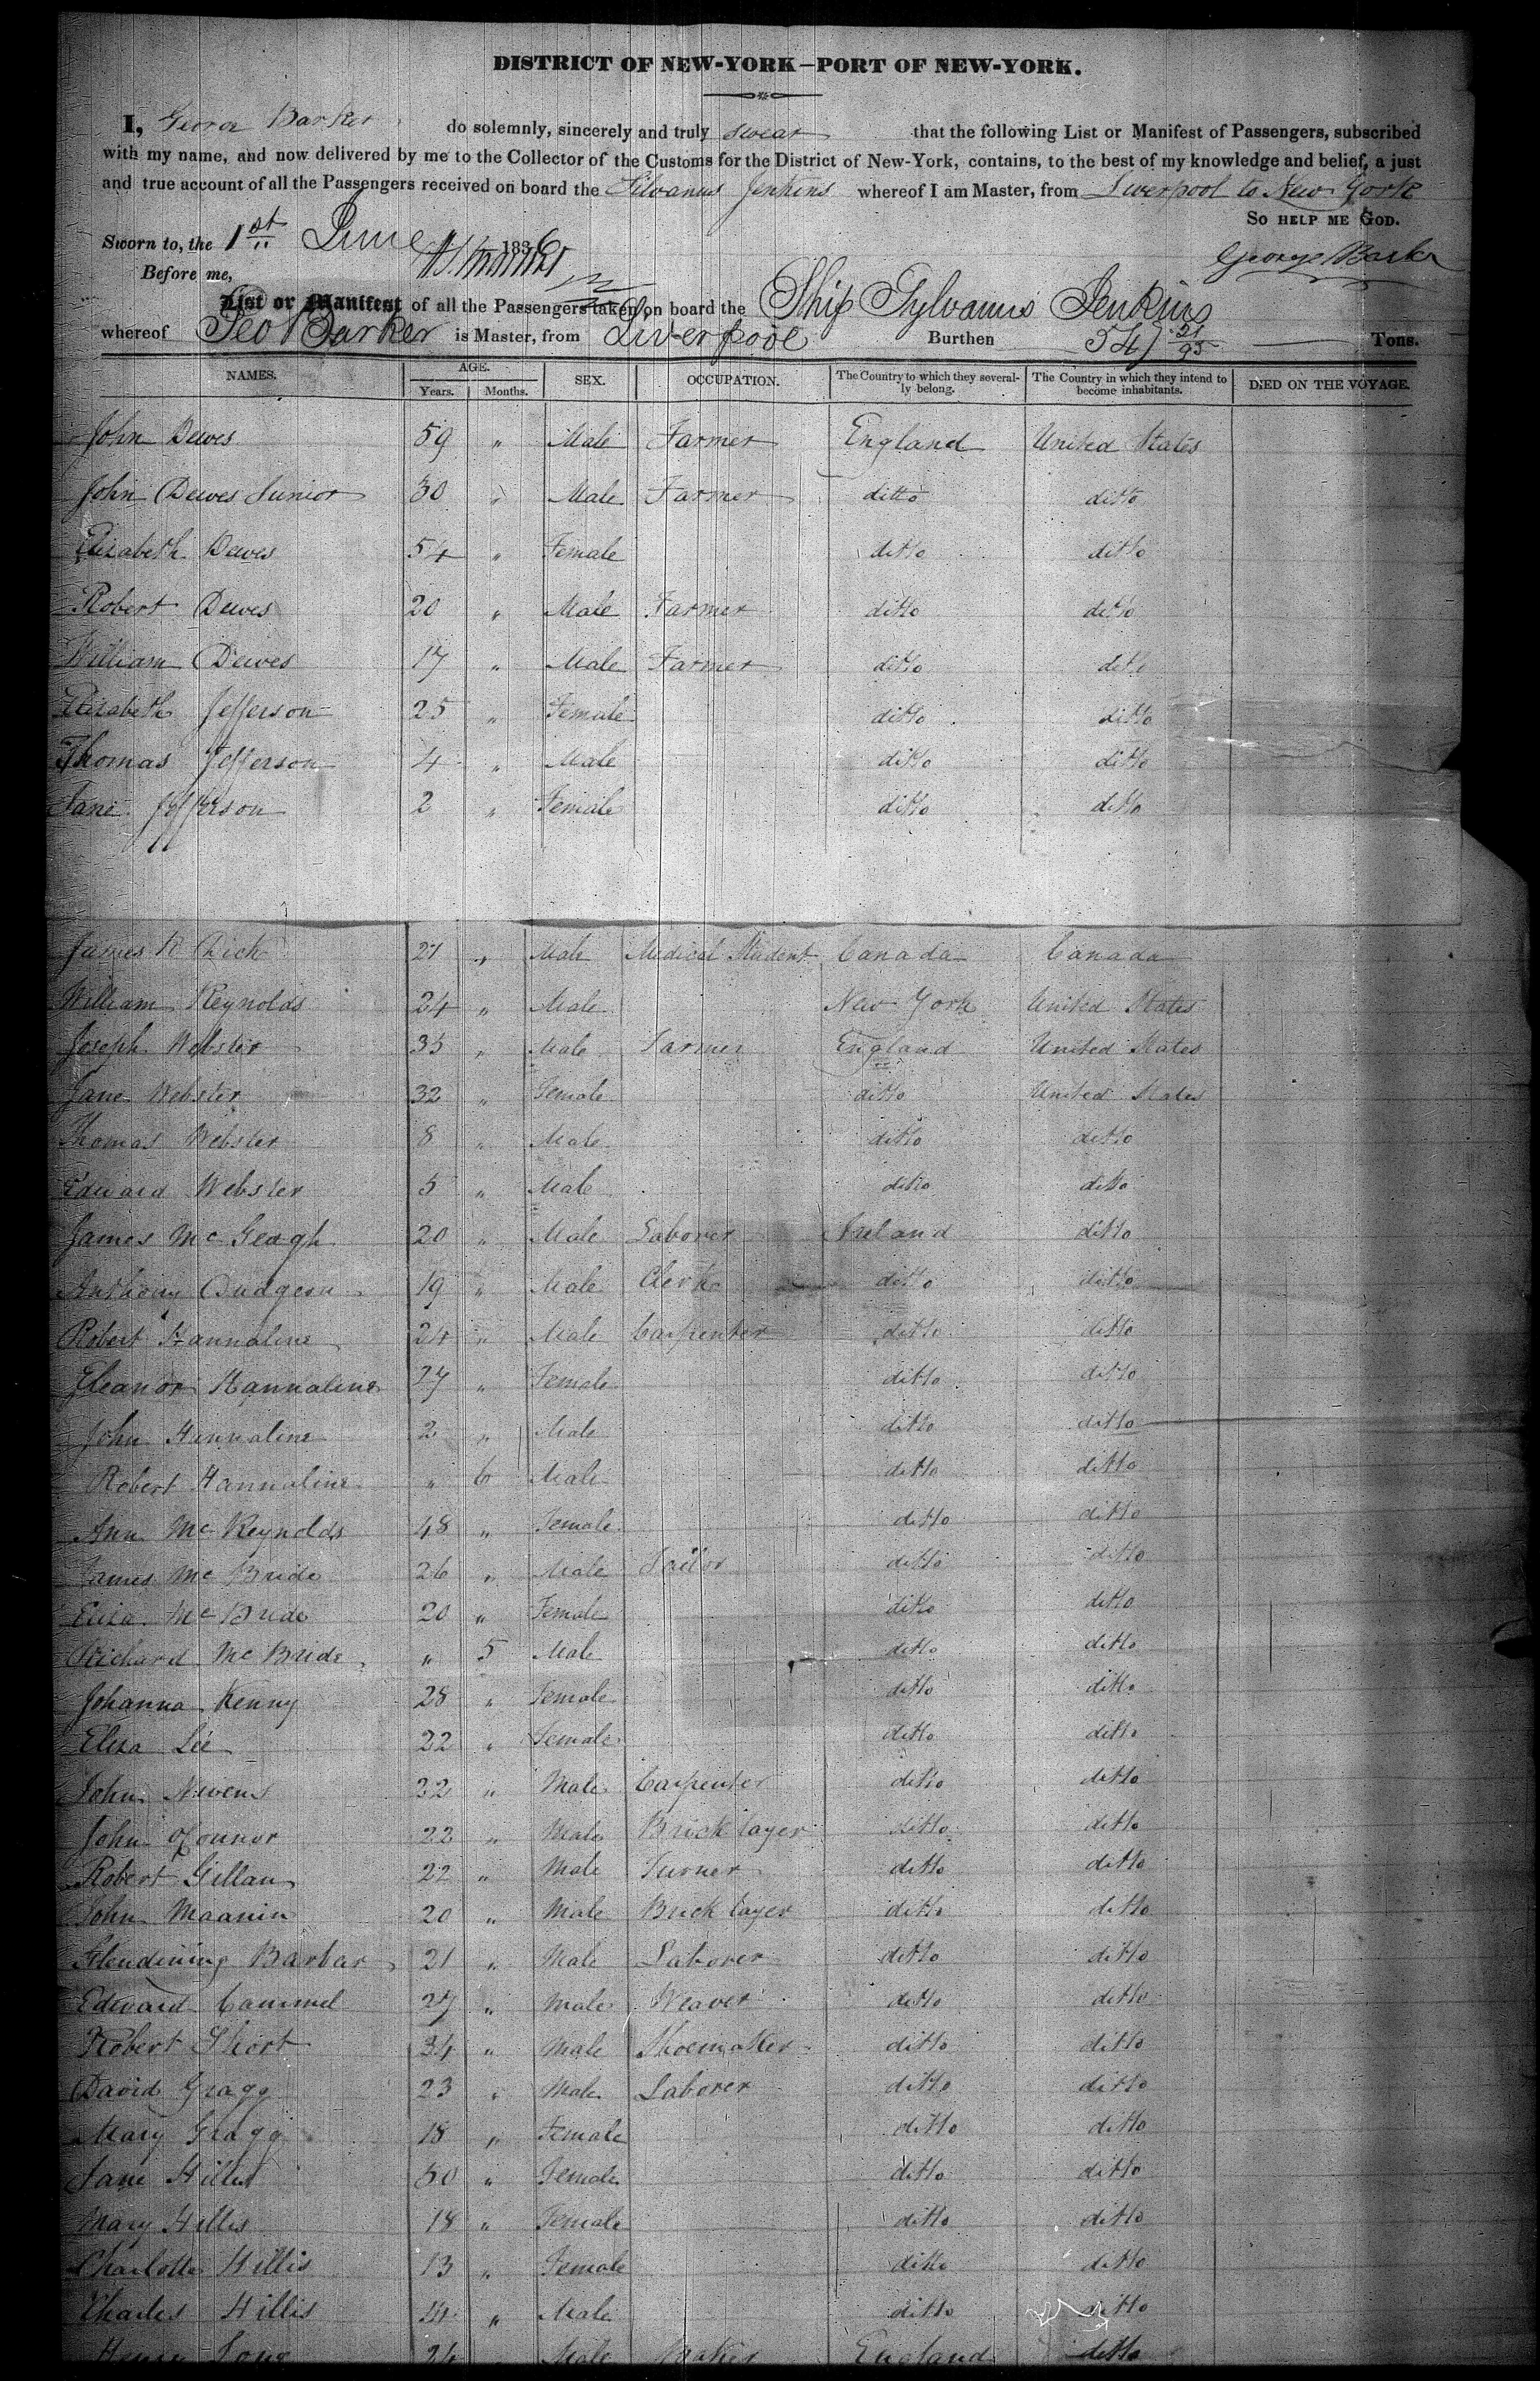 DISTRICT OF NEW-YORK—PORT OF NEW-YORK.
I, George Barker do solemnly, sincerely and truly swear that the following List or Manifest of Passengers, subscribed
with my name, and now delivered by me to the Collector of the Customs for the District of New-York, contains, to the best of my knowledge and belief, a just
and true account of all the Passengers received on board the Silvanus Jenkins whereof I am Master, from Liverpool to New York
So HELP ME GOD.
Sworn to, the 1st June 1836
George Barker
Before me,
List or Manifest of all the Passengers taken on board the Ship Sylvanus Jenkins
whereof Geo Barker is Master, from Liverpool Burthen 547 Tons.
NAMES. AGE. Years. Months. SEX. OCCUPATION. The Country to which they severally belong. The Country in which they intend to become inhabitants. DIED ON THE VOYAGE.
John Dewes 59 " Male Farmer England United States
John Dewes Junior 30 " Male Farmer ditto ditto
Elizabeth Dewes 54 " Female ditto ditto
Robert Dewes 20 " Male Farmer ditto ditto
William Dewes 17 " Male Farmer ditto ditto
Elizabeth Jefferson 25 " Female ditto ditto
Thomas Jefferson 4 " Male ditto ditto
Jane Jefferson 2 " Female ditto ditto
James R Dick 21 " Male Medical Student Canada Canada
William Reynolds 24 " Male New York United States
Joseph Webster 35 " Male Farmer England United States
Jane Webster 32 " Female ditto United States
Thomas Webster 8 " Male ditto ditto
Edward Webster 5 " Male ditto ditto
James McGeagh 20 " Male Laborer Ireland ditto
Anthony Dudgeon 19 " Male Clerk ditto ditto
Robert Hannaline 24 " Male Carpenter ditto ditto
Eleanor Hannaline 27 " Female ditto ditto
John Hannaline 2 " Male ditto ditto
Robert Hannaline " 6 Male ditto ditto
Ann McReynolds 48 " Female ditto ditto
James McBride 26 " Male Tailor ditto ditto
Eliza McBride 20 " Female ditto ditto
Richard McBride " 5 Male ditto ditto
Johanna Kenny 28 " Female ditto ditto
Eliza Lee 22 " Female ditto ditto
John Nevens 22 " Male Carpenter ditto ditto
John O'Connor 22 " Male Brick layer ditto ditto
Robert Gillan 22 " Male Turner ditto ditto
John Maanin 20 " Male Brick layer ditto ditto
Glendining Barbar 21 " Male Laborer ditto ditto
Edward Cammel 27 " Male Weaver ditto ditto
Robert Short 34 " Male Shoemaker ditto ditto
David Gragg 23 " Male Laborer ditto ditto
Mary Gragg 18 " Female ditto ditto
Jane Hillis 50 " Female ditto ditto
Mary Hillis 18 " Female ditto ditto
Charlotte Hillis 13 " Female ditto ditto
Charles Hillis 14 " Male ditto ditto
Henry Long 24 Male Baker England ditto